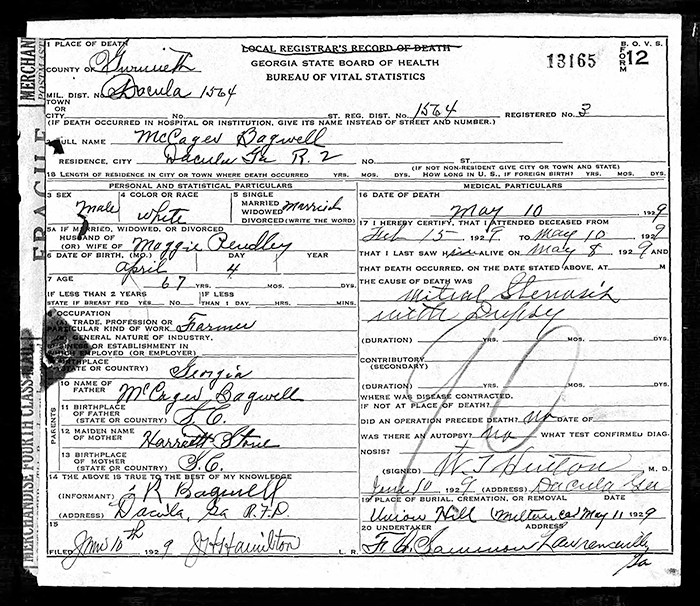 LOCAL REGISTRAR'S RECORD OF DEATH
GEORGIA STATE BOARD OF HEALTH
BUREAU OF VITAL STATISTICS
13165
B. O. V. S.
FORM 12
1 PLACE OF DEATH
COUNTY OF Gwinnett
MIL. DIST. NO. Dacula 1564
TOWN OR CITY NO. ST. REG. DIST. NO. 1564 REGISTERED NO. 3
(IF DEATH OCCURRED IN HOSPITAL OR INSTITUTION, GIVE ITS NAME INSTEAD OF STREET AND NUMBER.)
FULL NAME McCager Bagwell
RESIDENCE, CITY Dacula Ga R. 2 NO. ST.
(IF NOT NON-RESIDENT GIVE CITY OR TOWN AND STATE)
18 LENGTH OF RESIDENCE IN CITY OR TOWN WHERE DEATH OCCURRED YRS. MOS. DYS. HOW LONG IN U. S., IF FOREIGN BIRTH? YRS. MOS. DYS.
PERSONAL AND STATISTICAL PARTICULARS
3 SEX Male
4 COLOR OR RACE white
5 SINGLE MARRIED WIDOWED DIVORCED (WRITE THE WORD) Married
5A IF MARRIED, WIDOWED, OR DIVORCED
HUSBAND OF (OR) WIFE OF Maggie Pendley
6 DATE OF BIRTH, (MO.) DAY YEAR
April 4
7 AGE 67 YRS. MOS. DYS.
IF LESS THAN 2 YEARS IF LESS
STATE IF BREAST FED YES NO THAN 1 DAY HRS. MINS.
OCCUPATION
TRADE, PROFESSION OR
PARTICULAR KIND OF WORK Farmer
GENERAL NATURE OF INDUSTRY,
BUSINESS OR ESTABLISHMENT IN
WHICH EMPLOYED (OR EMPLOYER)
BIRTHPLACE
(STATE OR COUNTRY) Georgia
PARENTS
10 NAME OF FATHER McCager Bagwell
11 BIRTHPLACE OF FATHER (STATE OR COUNTRY) S. C.
12 MAIDEN NAME OF MOTHER Harriett Stone
13 BIRTHPLACE OF MOTHER (STATE OR COUNTRY) S. C.
14 THE ABOVE IS TRUE TO THE BEST OF MY KNOWLEDGE
(INFORMANT) R Bagwell
(ADDRESS) Dacula, Ga R.F.D.
15
FILED June 10th 1929 J H Hamilton L. R.
MEDICAL PARTICULARS
16 DATE OF DEATH
May 10 1929
17 I HEREBY CERTIFY, THAT I ATTENDED DECEASED FROM
Feb 15 1929 TO May 10 1929
THAT I LAST SAW Him ALIVE ON May 8 1929 AND
THAT DEATH OCCURRED, ON THE DATE STATED ABOVE, AT M
THE CAUSE OF DEATH WAS
Mitral Stenosis
with Dropsy
(DURATION) YRS. MOS. DYS.
CONTRIBUTORY
(SECONDARY)
90
(DURATION) YRS. MOS. DYS.
WHERE WAS DISEASE CONTRACTED,
IF NOT AT PLACE OF DEATH?
DID AN OPERATION PRECEDE DEATH? no DATE OF
WAS THERE AN AUTOPSY? no WHAT TEST CONFIRMED DIAG-
NOSIS?
(SIGNED) W. T. Hinton M. D.
June 10 1929 (ADDRESS) Dacula Ga
19 PLACE OF BURIAL, CREMATION, OR REMOVAL DATE
Union Hill Milton Co May 11 1929
20 UNDERTAKER ADDRESS
F. Q. Sammon Lawrenceville
Ga
MERCHAN
FRAGILE
MERCHANDISE FOURTH CLASS MAIL